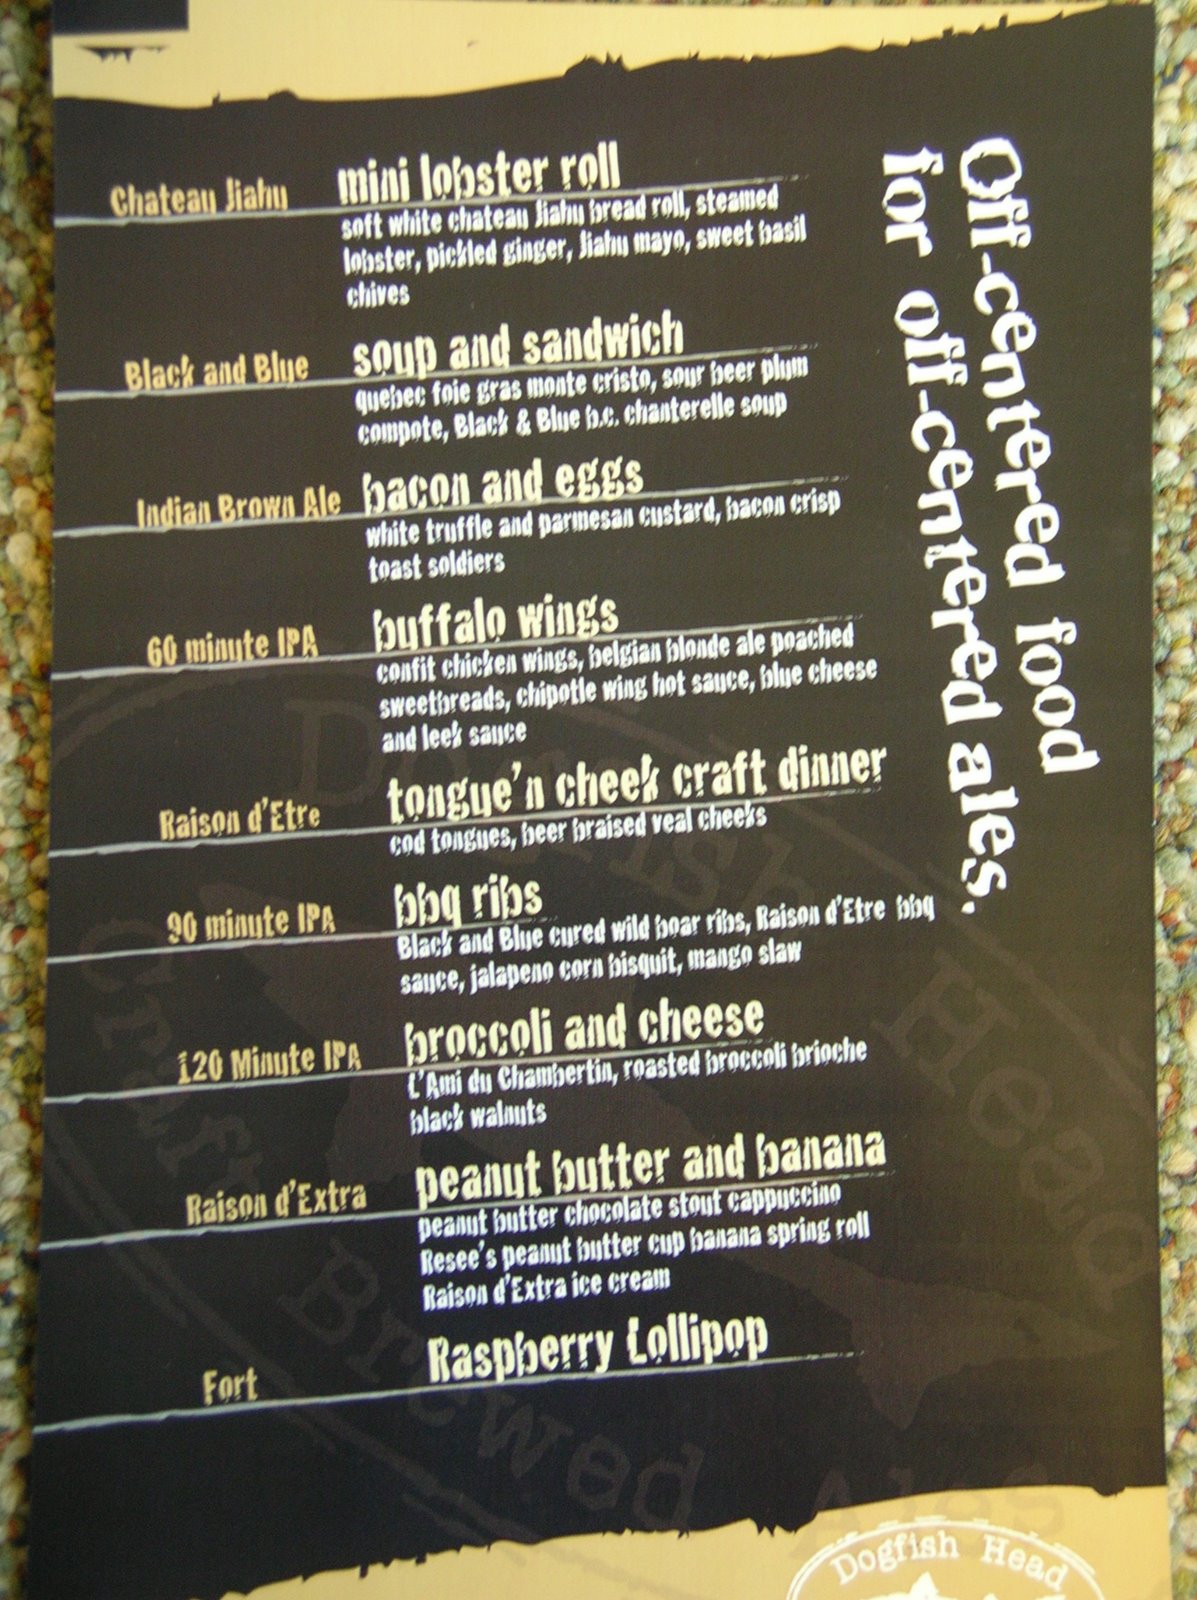 Off-centered food
for off-centered ales.
Chateau Jiahu
mini lobster roll
soft white chateau Jiahu bread roll, steamed
lobster, pickled ginger, Jiahu mayo, sweet basil
chives
Black and Blue
soup and sandwich
quebec foie gras monte cristo, sour beer plum
compote, Black & Blue b.c. chanterelle soup
Indian Brown Ale
bacon and eggs
white truffle and parmesan custard, bacon crisp
toast soldiers
60 minute IPA
buffalo wings
confit chicken wings, belgian blonde ale poached
sweetbreads, chipotle wing hot sauce, blue cheese
and leek sauce
Raison d'Etre
tongue'n cheek craft dinner
cod tongues, beer braised veal cheeks
90 minute IPA
bbq ribs
Black and Blue cured wild boar ribs, Raison d'Etre bbq
sauce, jalapeno corn bisquit, mango slaw
120 Minute IPA
broccoli and cheese
L'Ami du Chambertin, roasted broccoli brioche
black walnuts
Raison d'Extra
peanut butter and banana
peanut butter chocolate stout cappuccino
Resee's peanut butter cup banana spring roll
Raison d'Extra ice cream
Fort
Raspberry Lollipop
Dogfish Head
Craft Brewed Ales
Dogfish Head